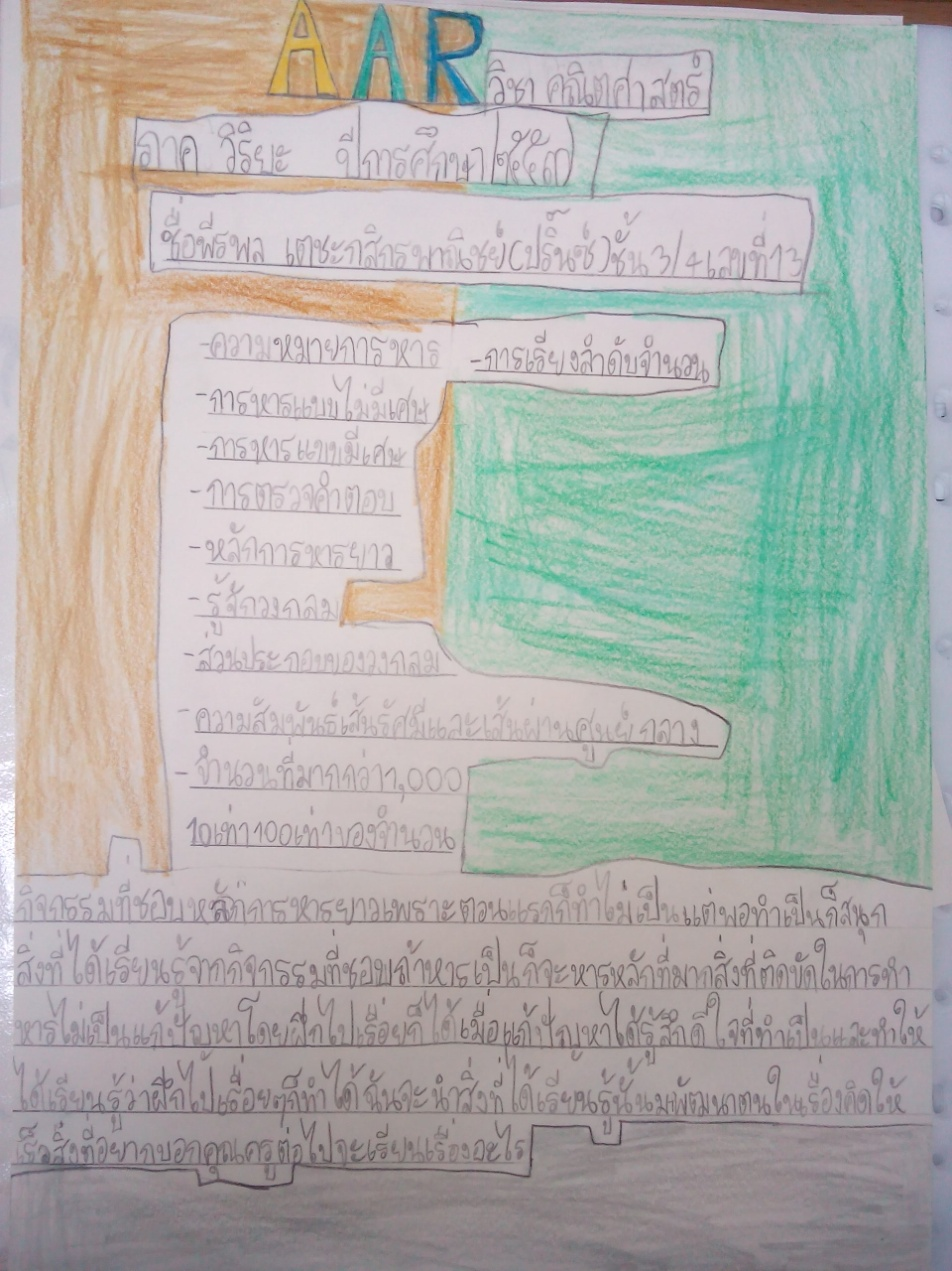 AAR วิชา คณิตศาสตร์
ภาค วิริยะ ปีการศึกษา ๒๕๕๗
ชื่อพีรพล เตชะกสิกรพาณิชย์(ปริ๊นซ์)ชั้น 3/4เลขที่13
-ความหมายการหาร -การเรียงลำดับจำนวน
-การหารแบบไม่มีเศษ
-การหารแบบมีเศษ
-การตรวจคำตอบ
-หลักการหารยาว
-รู้จักวงกลม
-ส่วนประกอบของวงกลม
-ความสัมพันธ์เส้นรัศมีและเส้นผ่านศูนย์กลาง
-จำนวนที่มากกว่า1,000
10เท่า100เท่าของจำนวน
กิจกรรมที่ชอบหลักการหารยาวเพราะตอนแรกก็ทำไม่เป็นแต่พอทำเป็นก็สนุก
สิ่งที่ได้เรียนรู้จากกิจกรรมที่ชอบถ้าหารเป็นก็จะหารหลักที่มากสิ่งที่ติดขัดในการทำ
หารไม่เป็นแก้ปัญหาโดยฝึกไปเรื่อยก็ได้เมื่อแก้ปัญหาได้รู้สึกดีใจที่ทำเป็นและทำให้
ได้เรียนรู้ว่าฝึกไปเรื่อยๆก็ทำได้ฉันจะนำสิ่งที่ได้เรียนรู้นั้นมาพัฒนาตนในเรื่องคิดให้
เร็วสิ่งที่อยากบอกคุณครูต่อไปจะเรียนเรื่องอะไร